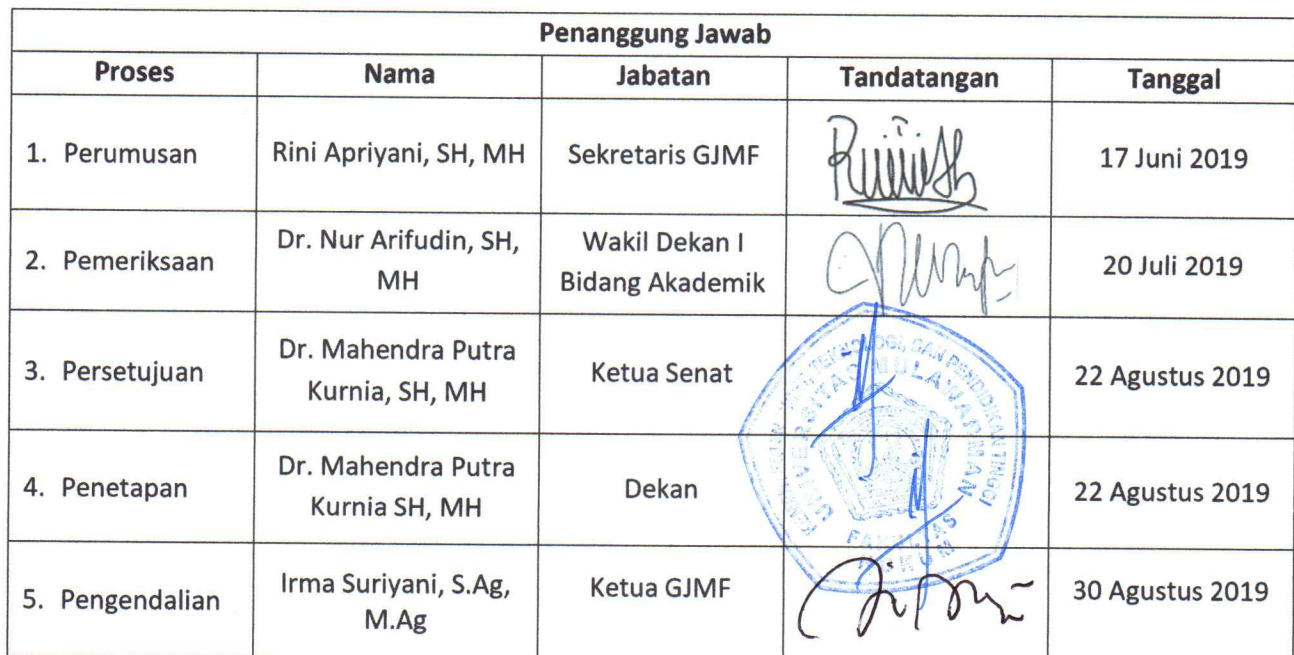 Penanggung Jawab
Proses Nama Jabatan Tandatangan Tanggal
1. Perumusan Rini Apriyani, SH, MH Sekretaris GJMF 17 Juni 2019
2. Pemeriksaan Dr. Nur Arifudin, SH, MH Wakil Dekan I Bidang Akademik 20 Juli 2019
3. Persetujuan Dr. Mahendra Putra Kurnia, SH, MH Ketua Senat 22 Agustus 2019
4. Penetapan Dr. Mahendra Putra Kurnia SH, MH Dekan 22 Agustus 2019
5. Pengendalian Irma Suriyani, S.Ag, M.Ag Ketua GJMF 30 Agustus 2019
TEKNOLOGI DAN PENDIDIKAN TINGGI
UNIVERSITAS MULAWARMAN
FAKULTAS
HUKUM